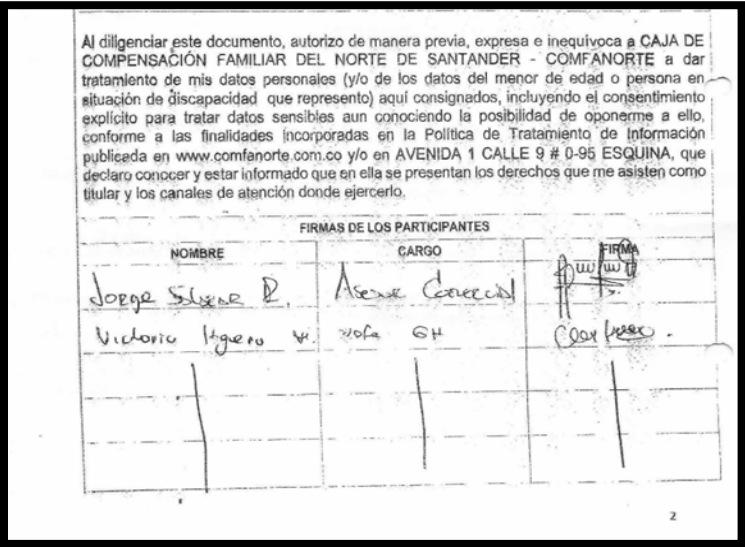 Al diligenciar este documento, autorizo de manera previa, expresa e inequivoca a CAJA DE
COMPENSACIÓN FAMILIAR DEL NORTE DE SANTANDER - COMFANORTE a dar
tratamiento de mis datos personales (y/o de los datos del menor de edad o persona en
situación de discapacidad que represento) aquí consignados, incluyendo el consentimiento
explícito para tratar datos sensibles aun conociendo la posibilidad de oponerme a ello,
conforme a las finalidades incorporadas en la Política de Tratamiento de Información
publicada en www.comfanorte.com.co y/o en AVENIDA 1 CALLE 9 # 0-95 ESQUINA, que
declaro conocer y estar informado que en ella se presentan los derechos que me asisten como
titular y los canales de atención donde ejercerlo.
FIRMAS DE LOS PARTICIPANTES
NOMBRE CARGO FIRMA
Jorge R. Asesor Comercial
Victoria GH
2